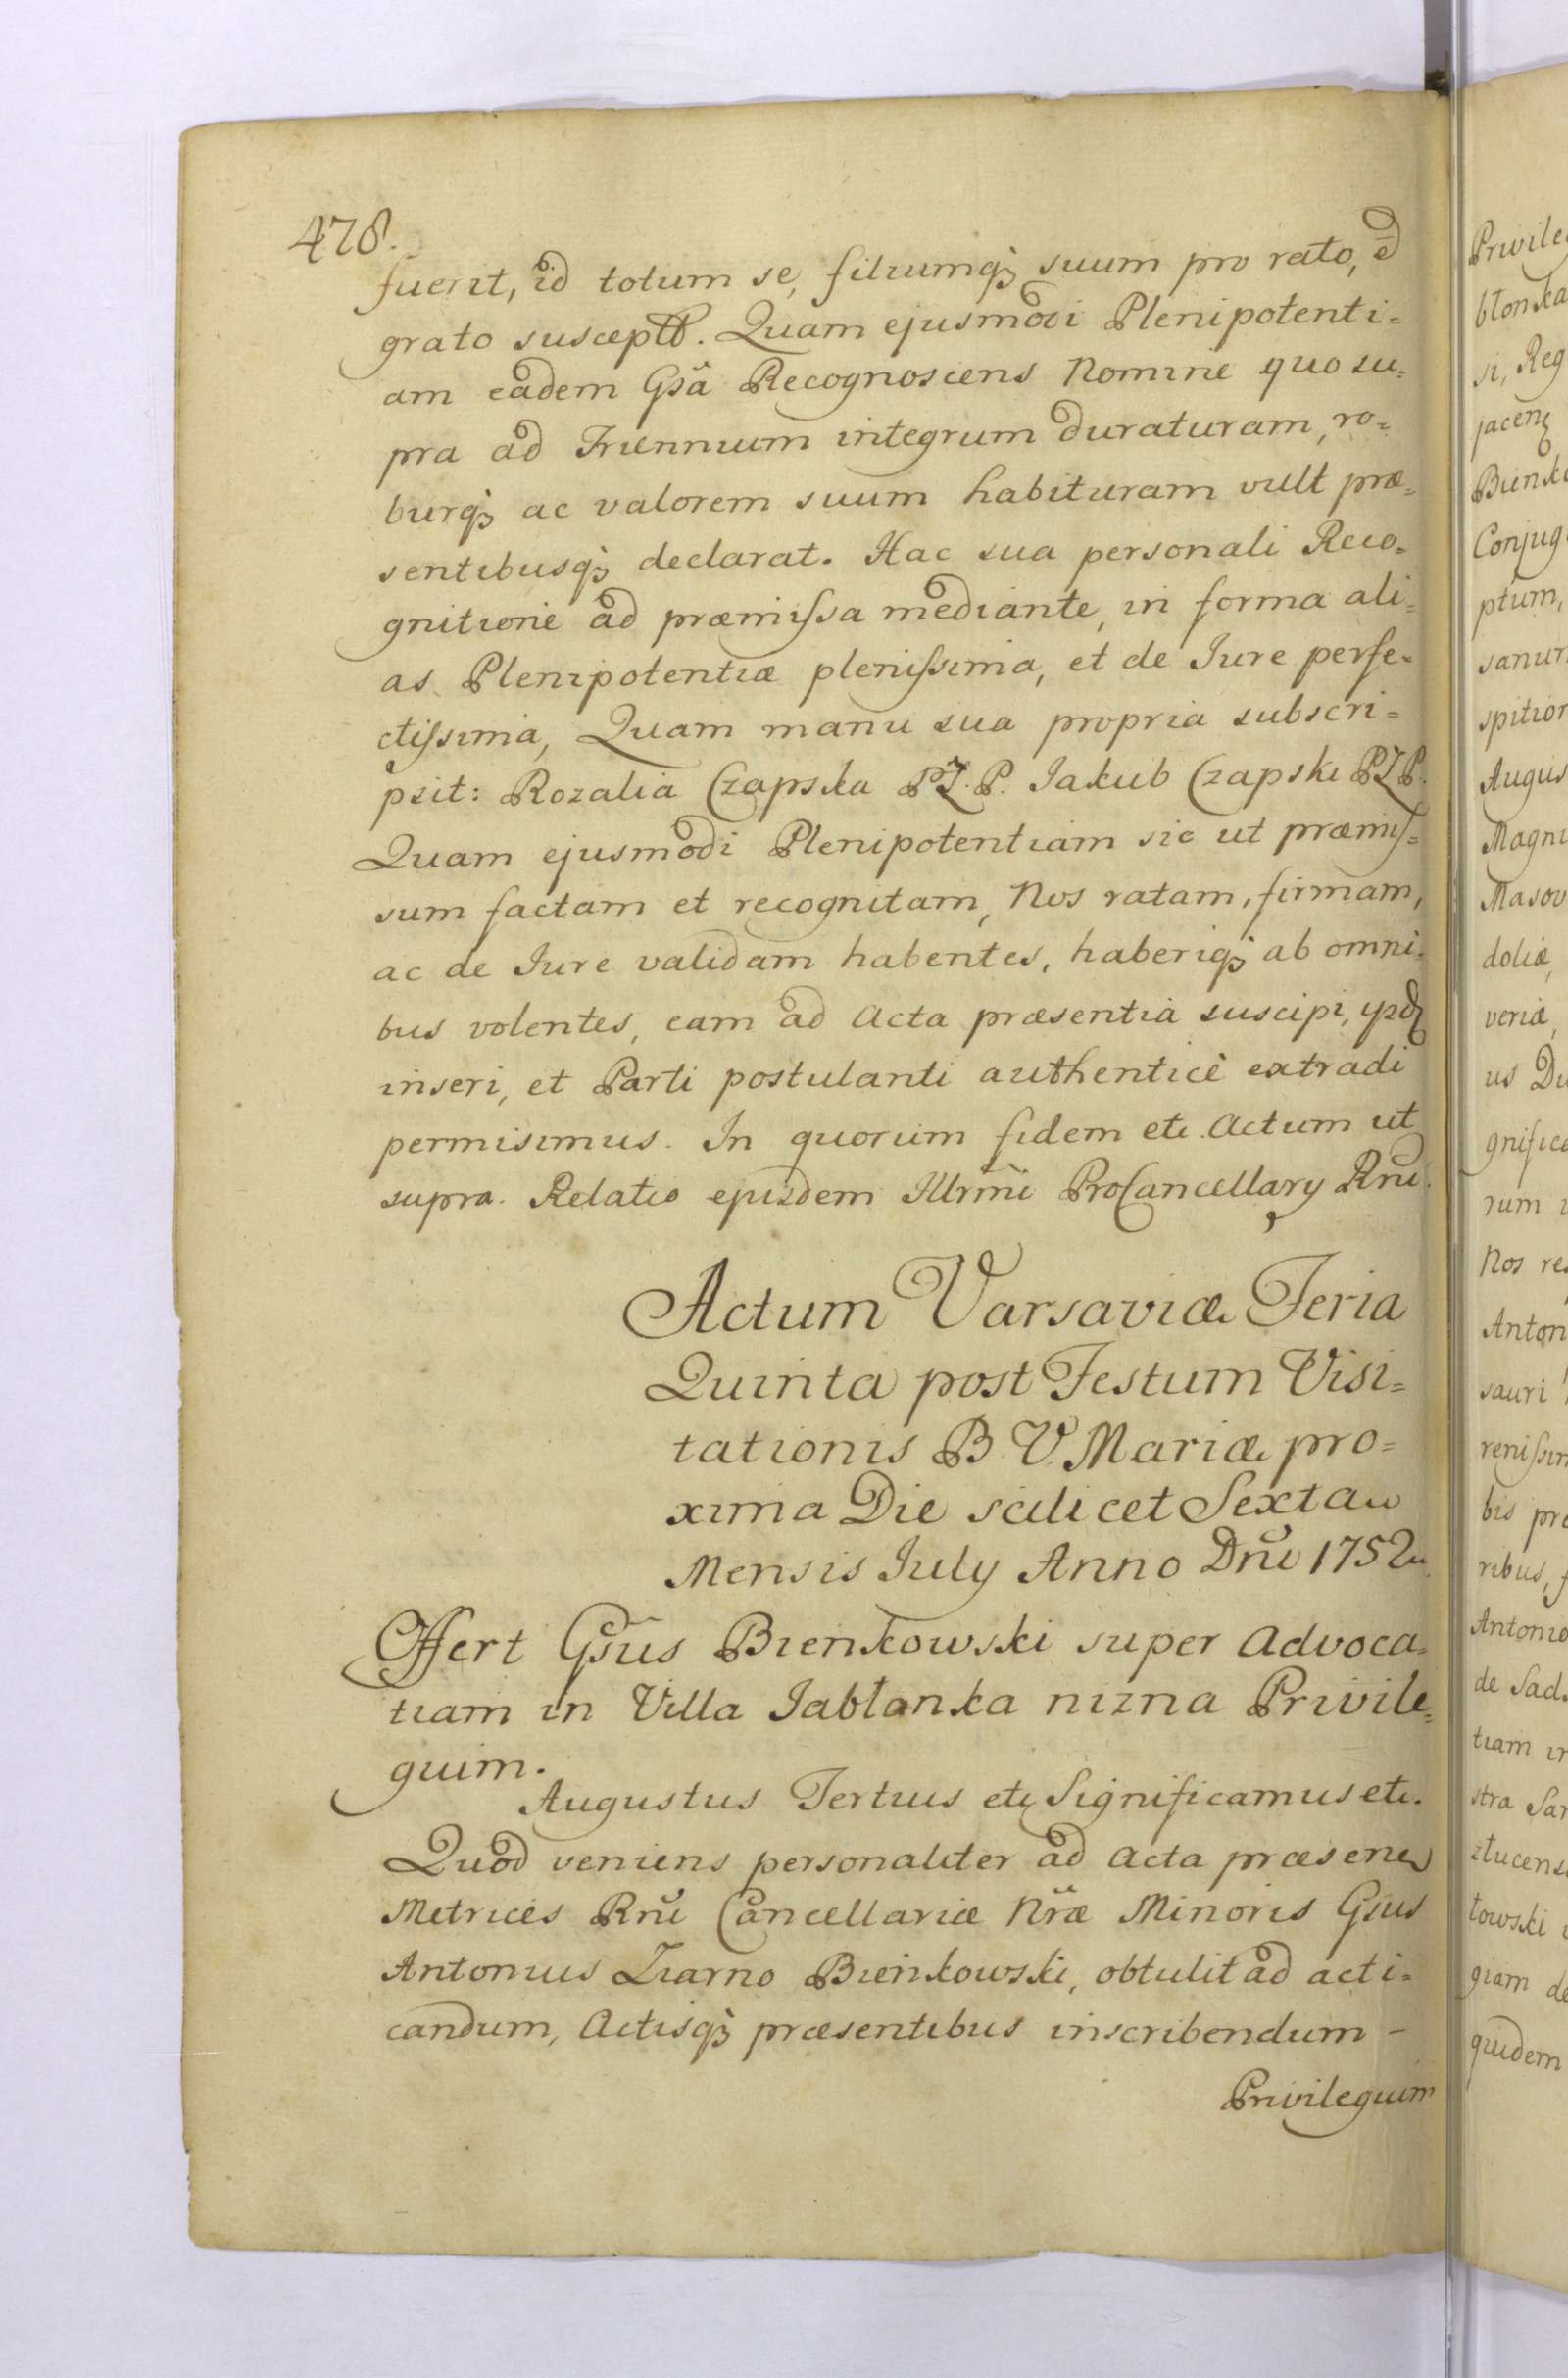 478.
fuerit, id totum se, filiumq́ suum pro rato, et
grato suscept. Quam ejusmodi Plenipotenti=
am eadem Gsa Recognoscens Nomine quo su=
pra ad Triennium integrum duraturam, ro=
burq́ ac valorem suum habituram vult præ=
sentibusq́ declarat. Hac sua personali Reco=
gnitione ad præmissa mediante, in forma ali=
as Plenipotentiæ plenissima, et de Jure perfe=
ctissima, Quam manu sua propria subscri=
psit: Rozalia Czapska PZ.P. Jakub Czapski PZP.
Quam ejusmodi Plenipotentiam sic ut præmis=
sum factam et recognitam, Nos ratam, firmam,
ac de Jure validam habentes, haberiq́ ab omni=
bus volentes, eam ad Acta præsentia suscipi,
inseri, et Parti postulanti authentice extradi
permisimus. In quorum fidem etc. Actum ut
supra. Relatio ejusdem Illrmi ProCancellary Rni.
Actum Varsaviæ Feria
Quinta post Festum Visi=
tationis B V. Mariæ pro=
xima Die scilicet Sexta
Mensis July Anno Dni 1752
Offert Gsus Bienkowski super Advoca=
tiam in Villa Jabłonka nizna Privile=
gium.
Augustus Tertius etc Significamus etc.
Quod veniens personaliter ad Acta præsenes
Metrices Rni Cancellariæ Nræ Minoris Gsus
Antonius Ziarno Bieńkowski, obtulit ad acti=
candum, Actisq́ præsentibus inscribendum -
Privilegium
Privile
błonka
si, Reg
jacen
Bienko
Conjug
ptum,
sanur
spition
Augus
Magni
Masov
doliæ,
veriæ,
us Du
gnifica
rum
Nos re
Anton
sauri
renissim
bis pro
ribus, f
Antonio
de Sad
tiam in
stra San
towski
giam de
quidem